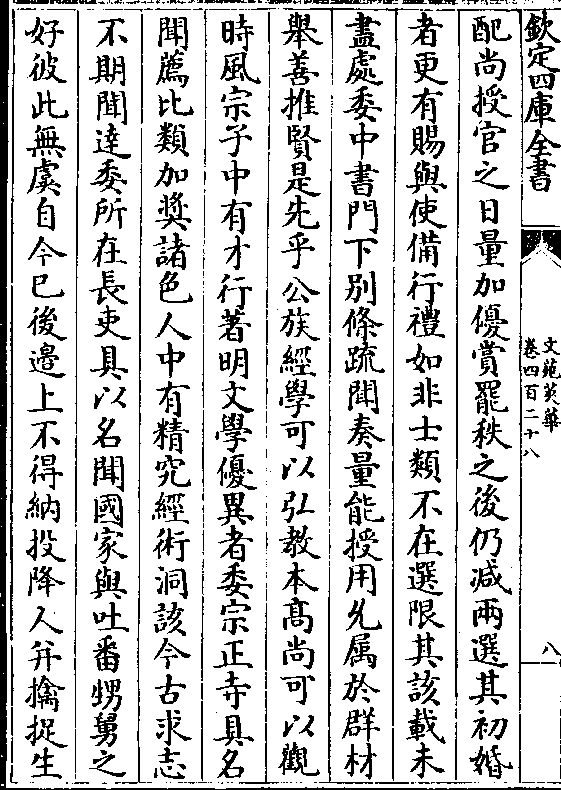 欽定四庫全書
文苑英華
卷四百二十八
八
配尚授官之日量加優賞罷秩之後仍減兩選其初婚
者更有賜與使備行禮如非士類不在選限其該載未
盡處委中書門下别條疏聞奏量能授用允属於群材
舉善推賢是先乎公族經學可以弘教本髙尚可以觀
時風宗子中有才行著明文學優異者委宗正寺具名
聞薦比類加奬諸色人中有精究經術洞該今古求志
不期聞達委所在長吏具以名聞國家與吐番甥舅之
好彼此無虞自今已後邉上不得納投降人并擒捉生